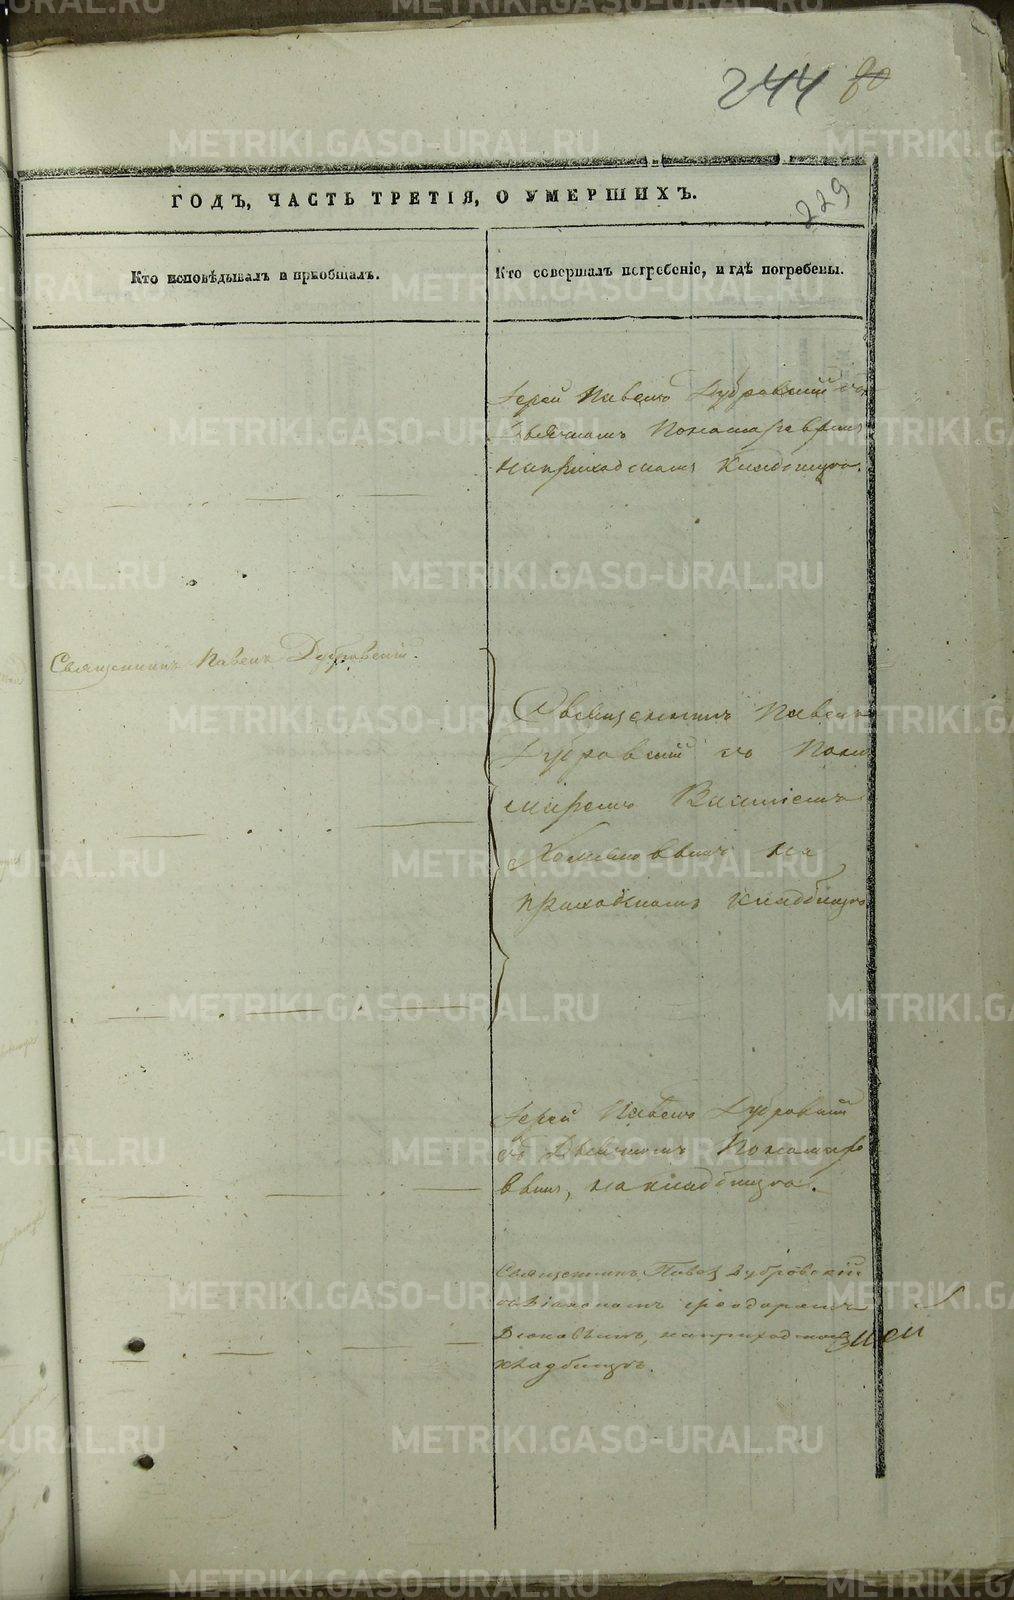 244 80
229
ГОДЪ, ЧАСТЬ ТРЕТІЯ, О УМЕРШИХЪ.
Кто исповѣдывалъ и пріобщалъ.
Кто совершалъ погребеніе, и гдѣ погребены.
Іерей Павелъ Дубровскій съ
Дьячкомъ Пономаревымъ
на приходскомъ кладбищѣ.
Священникъ Павелъ Дубровскій.
Священникъ Павелъ
Дубровскій съ Поно
маремъ
на
приходскомъ кладбищѣ
Іерей Павелъ Дубровскій
съ Дьячкомъ Пономаре
вымъ, на кладбищѣ.
Священникъ Павелъ Дубровскій
съ Діакономъ Ѳеодоромъ
на приходском
кладбищѣ.
METRIKI.GASO-URAL.RU